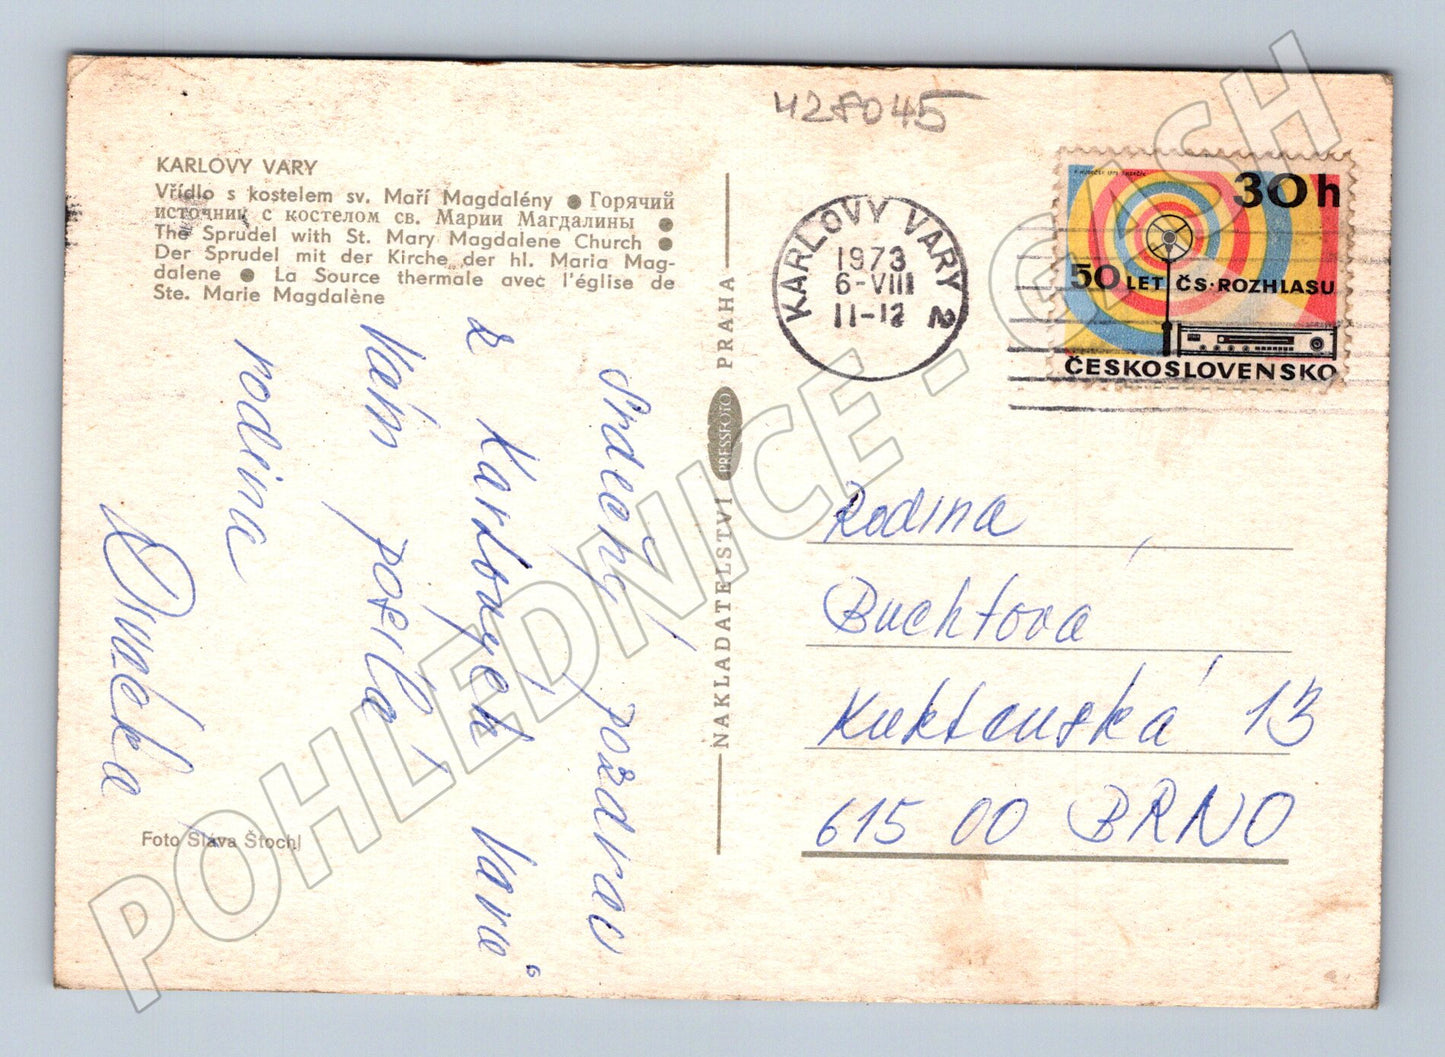 428045
KARLOVY VARY
Vřídlo s kostelem sv. Maří Magdalény ● Горячий
источник с костелом св. Марии Магдалины ●
The Sprudel with St. Mary Magdalene Church ●
Der Sprudel mit der Kirche der hl. Maria Mag-
dalene ● La Source thermale avec l'église de
Ste. Marie Magdalène
Srdečný pozdrav
z Karlových Varů
Vám posílá
rodina
Foto Sláva Štochl
NAKLADATELSTVÍ PRESSFOTO PRAHA
KARLOVY VARY 2
1973
6-VIII
11-12
30h
50 LET ČS·ROZHLASU
ČESKOSLOVENSKO
Rodina
Buchtova
615 00 BRNO
POHLEDNICE - CASH